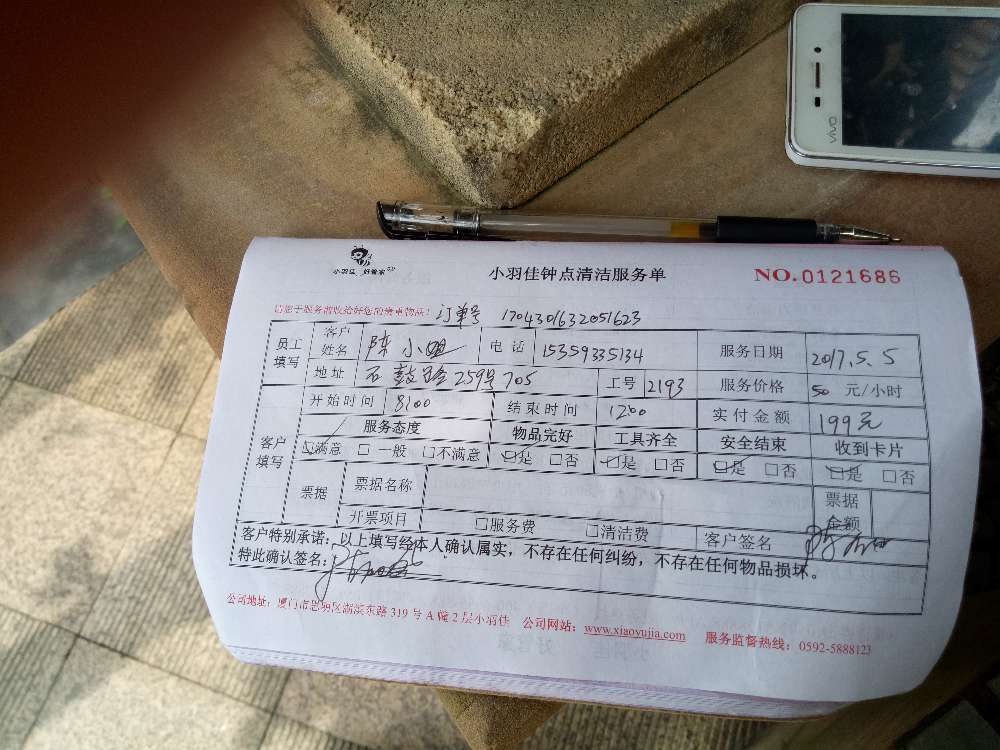 vivo
小羽佳 好管家
小羽佳钟点清洁服务单
NO.0121686
请您于服务前收拾好您的贵重物品! 订单号 1704301632051623
员工填写 客户姓名 陈小姐 电话 15359335134 服务日期 2017.5.5
地址 石鼓路259号705 工号 2193 服务价格 50 元/小时
开始时间 8:00 结束时间 1200 实付金额 199元
客户填写 服务态度 物品完好 工具齐全 安全结束 收到卡片
☑满意 □一般 □不满意 ☑是 □否 ☑是 □否 ☑是 □否 ☑是 □否
票据 票据名称 票据金额
开票项目 □服务费 □清洁费 客户签名
客户特别承诺:以上填写经本人确认属实,不存在任何纠纷,不存在任何物品损坏。
特此确认签名:
公司地址:厦门市思明区湖滨东路 319 号 A 幢 2 层小羽佳 公司网站:www.xiaoyujia.com 服务监督热线:0592-5888123